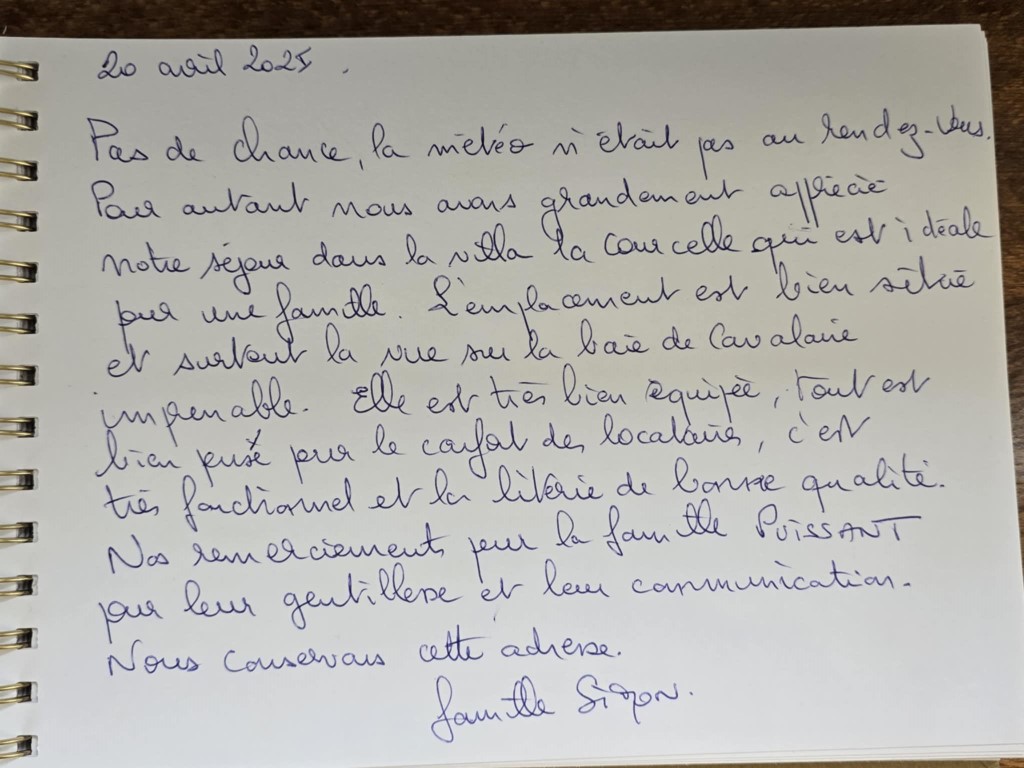 20 avril 2025.
Pas de chance, la météo n'était pas au rendez-vous.
Pour autant nous avons grandement apprécié
notre séjour dans la villa la Courcelle qui est idéale
pour une famille. L'emplacement est bien située
et surtout la vue sur la baie de Cavalaire
imprenable. Elle est très bien équipée, tout est
bien pensé pour le confort des locataires, c'est
très fonctionnel et la literie de bonne qualité.
Nos remerciements pour la famille PUISSANT
pour leur gentillesse et leur communication.
Nous conservons cette adresse.
famille Simon.